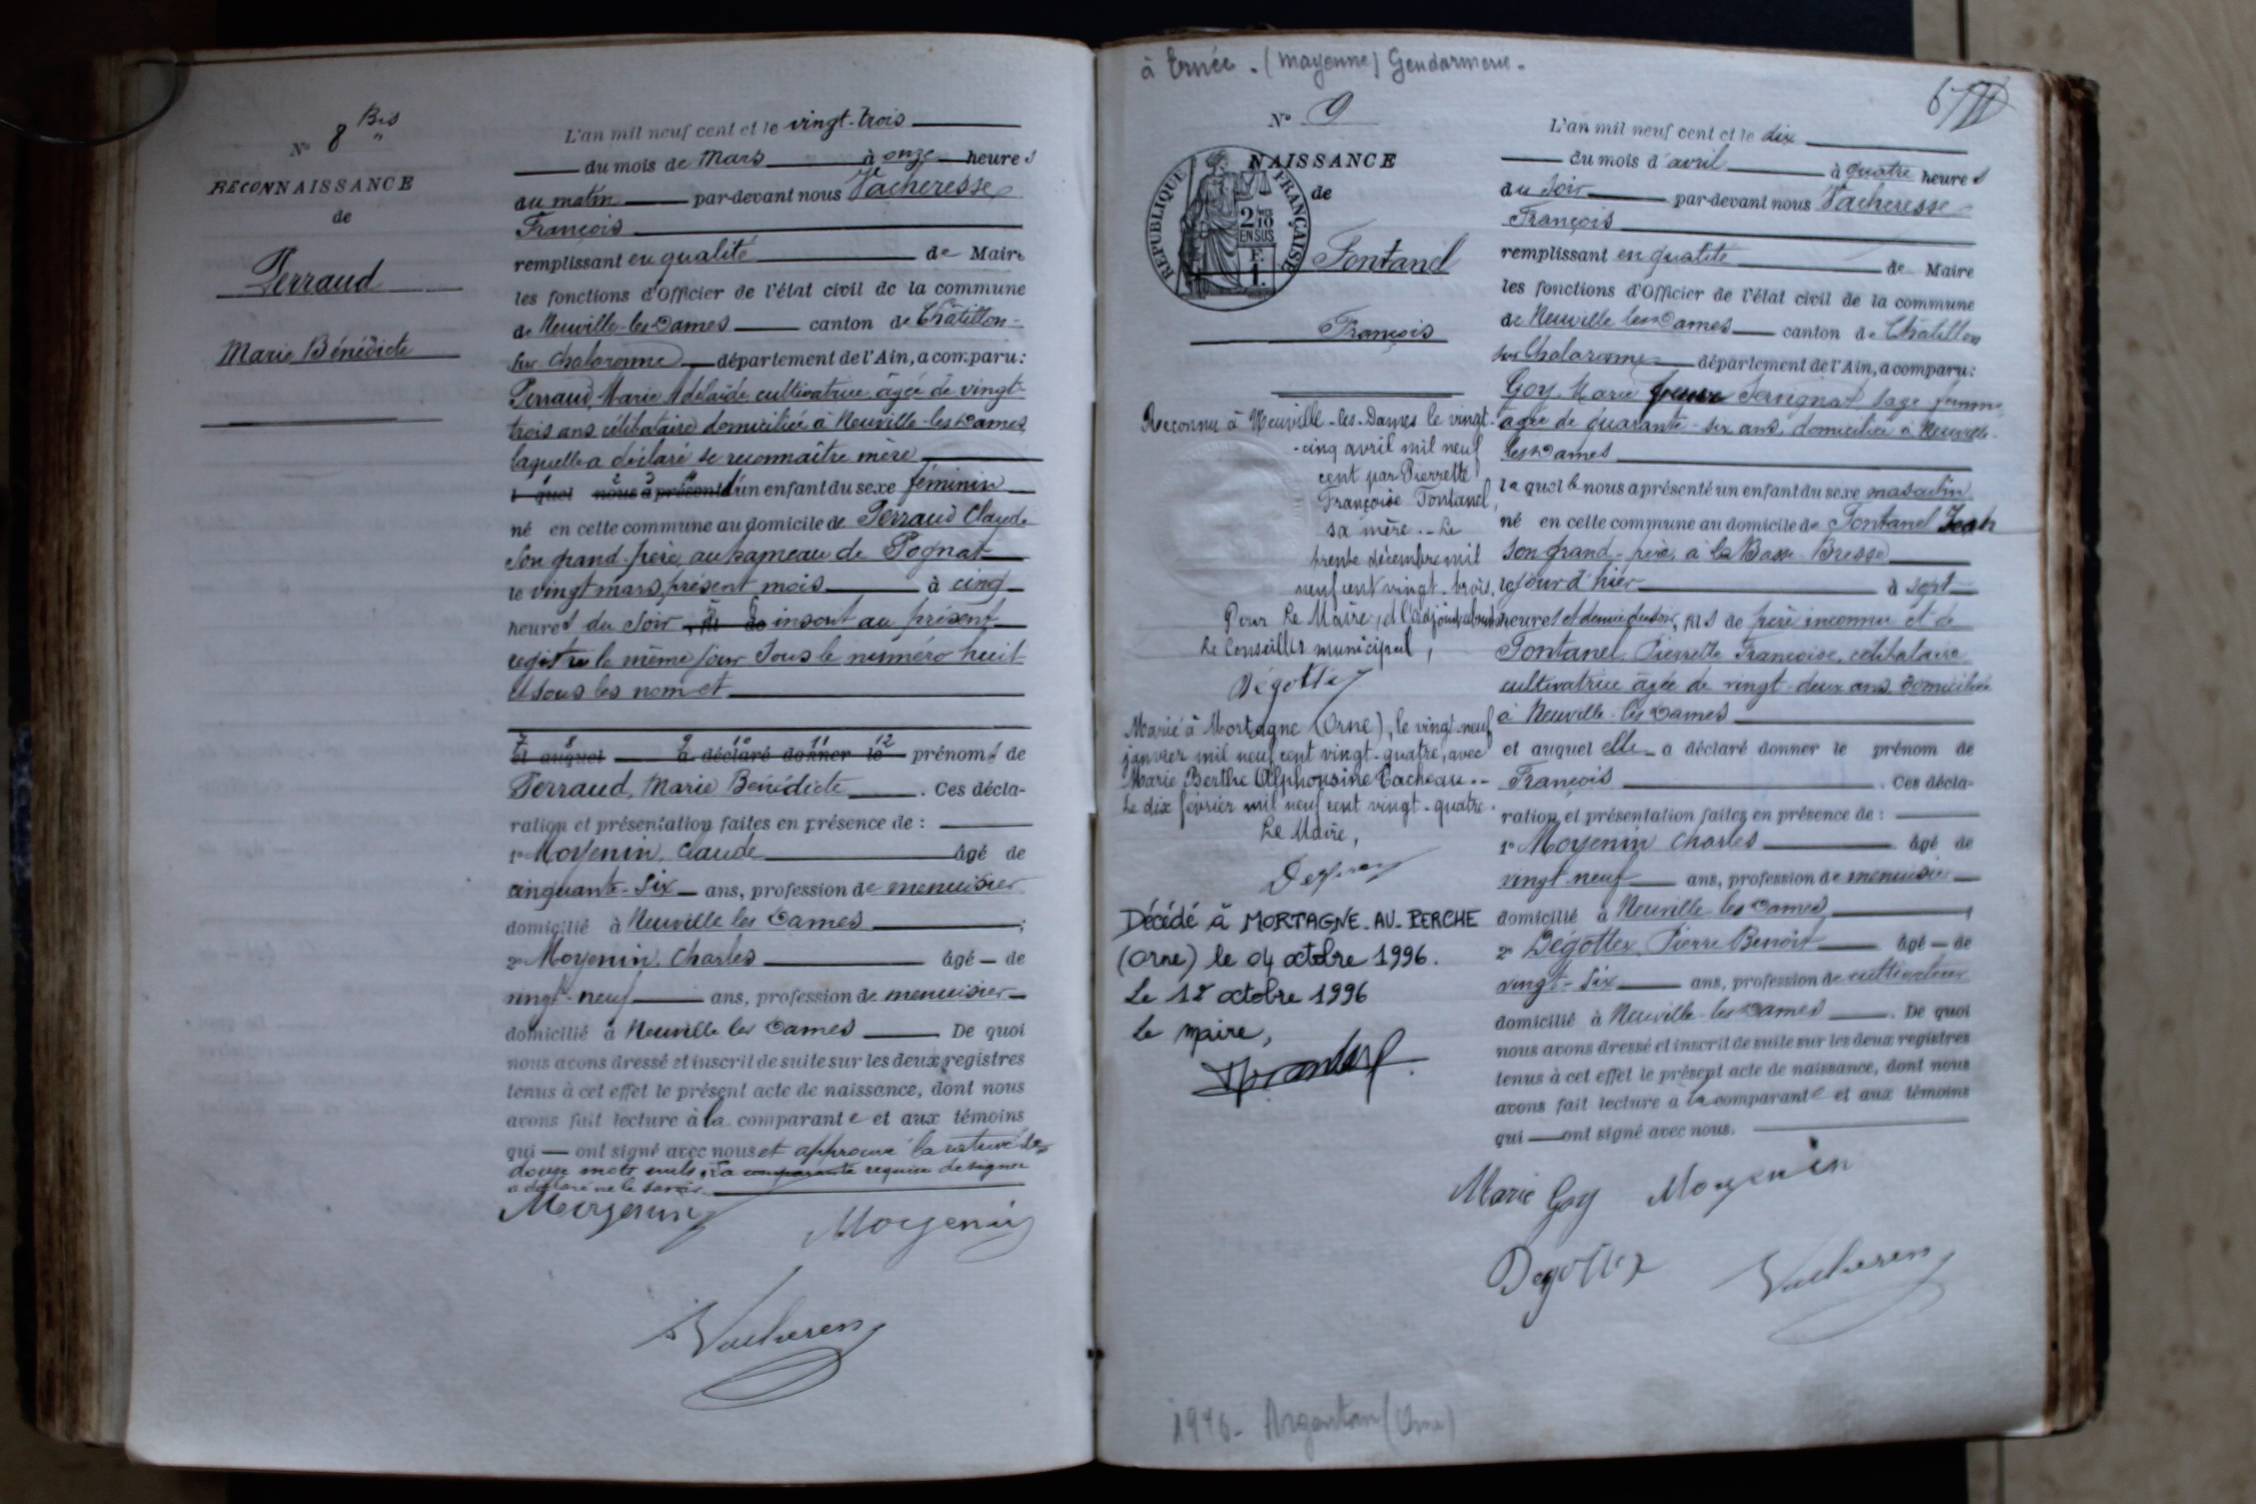 Nº 8 Bis
RECONNAISSANCE
de
Perraud
Marie Bénédicte
L'an mil neuf cent et le vingt-trois
du mois de Mars à onze heures
du matin par-devant nous Vacheresse
François
remplissant en qualité de Maire
les fonctions d'Officier de l'état civil de la commune
de Neuville-les-Dames canton de Châtillon-
sur Chalaronne département de l'Ain, a comparu:
Perraud, Marie Adélaïde cultivatrice âgée de vingt-
trois ans célibataire domiciliée à Neuville-les-Dames
laquelle a déclaré se reconnaître mère
1 2 3 4
l quel nous a présenté d'un enfant du sexe féminin
né en cette commune au domicile de Perraud Claude
son grand-père au hameau de Pognat
le vingt mars, présent mois à cinq
5 6
heures du soir, fil de inscrit au présent
registre le même jour sous le numéro huit
et sous les nom et
7 8 9 10 11 12
et auquel a déclaré donner le prénoms de
Perraud, Marie Bénédicte. Ces décla-
ration et présentation faites en présence de :
1º Moyenin, Claude âgé de
cinquante-six ans, profession de menuisier
domicilié à Neuville les Dames ;
2º Moyenin, Charles âgé de
vingt-neuf ans, profession de menuisier
domicilié à Neuville les Dames De quoi
nous avons dressé et inscrit de suite sur les deux registres
tenus à cet effet le présent acte de naissance, dont nous
avons fait lecture à la comparante et aux témoins
qui ont signé avec nous et approuvé la rature de
douze mots nuls, la comparante requise de signer
a déclaré ne le savoir.
Moyenin Moyenin
Vacheresse
à Ernée - (Mayenne) Gendarmerie -
6
Nº 9
NAISSANCE
de
RÉPUBLIQUE FRANÇAISE
2/10 EN SUS
F.
1.
Fontanel
François
Reconnu à Neuville-les-Dames le vingt-
cinq avril mil neuf
cent par Pierrette
Françoise Fontanel,
sa mère. - Le
trente décembre mil
neuf cent vingt-trois,
Pour le Maire, et l'adjoint absents
Le Conseiller municipal,
Dégottex
Marié à Mortagne (Orne), le vingt-neuf
janvier mil neuf cent vingt-quatre, avec
Marie Berthe Alphonsine Tacheau.-
Le dix février mil neuf cent vingt-quatre.
Le Maire,
Décédé à MORTAGNE-AU-PERCHE
(Orne) le 04 octobre 1996.
Le 18 octobre 1996
Le maire,
L'an mil neuf cent et le dix
du mois d'avril à quatre heures
du soir par-devant nous Vacheresse
François
remplissant en qualité de Maire
les fonctions d'Officier de l'état civil de la commune
de Neuville les Dames canton de Châtillon
sur Chalaronne département de l'Ain, a comparu:
Goy, Marie femme Servignat sage femme
âgée de quarante-six ans, domiciliée à Neuville-
les-Dames
laquelle nous a présenté un enfant du sexe masculin
né en cette commune au domicile de Fontanel Jean
son grand-père, à la Basse Bresse
le jour d'hier à sept
heures et demie du soir, fils de père inconnu et de
Fontanel, Pierrette Françoise, célibataire
cultivatrice âgée de vingt-deux ans, domiciliée
à Neuville-les-Dames
et auquel elle a déclaré donner le prénom de
François. Ces décla-
ration et présentation faites en présence de :
1º Moyenin Charles âgé de
vingt-neuf ans, profession de menuisier
domicilié à Neuville-les-Dames ;
2º Dégottex, Pierre Benoît âgé de
vingt-six ans, profession de cultivateur
domicilié à Neuville-les-Dames. De quoi
nous avons dressé et inscrit de suite sur les deux registres
tenus à cet effet le présent acte de naissance, dont nous
avons fait lecture à la comparante et aux témoins
qui ont signé avec nous.
Marie Goy Moyenin
Degottex Vacheresse
1946 - Argentan (Orne)